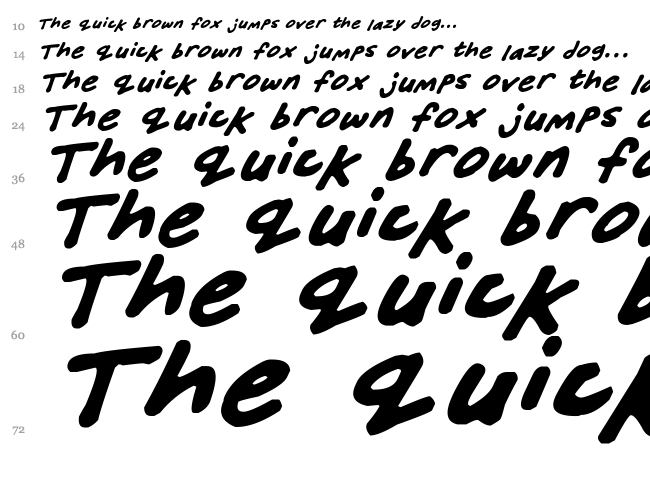 10 The quick brown fox jumps over the lazy dog...
14 The quick brown fox jumps over the lazy dog...
18 The quick brown fox jumps over the la
24 The quick brown fox jumps o
36 The quick brown fo
48 The quick bro
60 The quick b
72 The quick